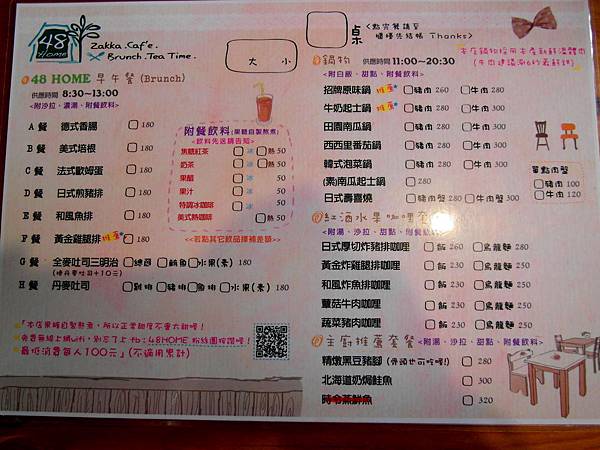 48 HOME
Zakka.Caf'e.
Brunch.Tea Time.
大 小
桌
<點完餐請至
櫃檯先結帳 Thanks>
48 HOME 早午餐(Brunch)
供應時間 8:30~13:00
<附沙拉、濃湯、附餐飲料>
A 餐 德式香腸 180
B 餐 美式培根 180
C 餐 法式歐姆蛋 180
D 餐 日式煎豬排 180
E 餐 和風魚排 180
F 餐 黃金雞腿排 推薦* 180
G 餐 全麥吐司三明治 總匯 鮪魚 水果(素) 180
H 餐 丹麥吐司 豬排 魚排 水果(素) 180
附餐飲料(果醋自製熬煮)
<飲料先送請告知>
焦糖紅茶 冰 熱 50
奶茶 冰 熱 50
果醋 冰 50
果汁 冰 50
特調冰咖啡 冰 50
美式熱咖啡 熱 50
<<若點其它飲品擇補差額>>
「本店果醋自製熬煮,所以正常甜度不會太甜喔!
免費無線上網wifi,別忘了上 fb:48HOME 粉絲團按讚喔!
最低消費每人100元」(不適用累計)
鍋物 供應時間 11:00~20:30
<附白飯、甜點、附餐飲料>
招牌原味鍋 推薦* 豬肉 260 牛肉 280
牛奶起士鍋 推薦* 豬肉 280 牛肉 300
田園南瓜鍋 豬肉 280 牛肉 300
西西里番茄鍋 豬肉 280 牛肉 300
韓式泡菜鍋 豬肉 280 牛肉 300
(素)南瓜起士鍋 280
日式壽喜燒 豬肉 280 牛肉 300
單點肉盤
豬肉 100
牛肉 120
紅酒水果咖哩套餐
<附湯、沙拉、甜點、附餐飲料>
日式厚切炸豬排咖哩 飯 260 烏龍麵 280
黃金炸雞腿排咖哩 飯 230 烏龍麵 250
和風炸魚排咖哩 飯 230 烏龍麵 250
蘑菇牛肉咖哩 飯 230 烏龍麵 250
蔬菜豬肉咖哩 飯 230 烏龍麵 250
主廚推薦套餐 <附湯、沙拉、甜點、附餐飲料>
精燉黑豆豬腳 280
北海道奶焗鮭魚 300
320